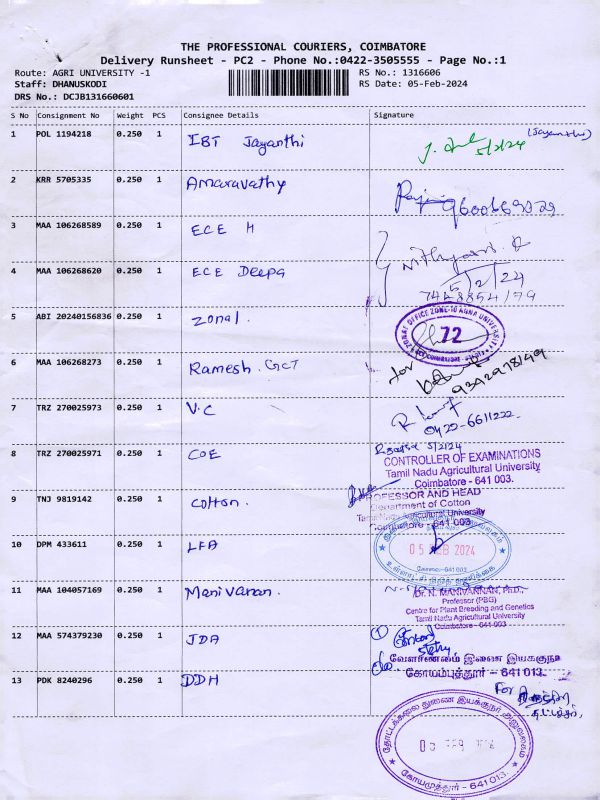 THE PROFESSIONAL COURIERS, COIMBATORE
Delivery Runsheet - PC2 - Phone No.:0422-3505555 - Page No.:1
Route: AGRI UNIVERSITY -1
Staff: DHANUSKODI
DRS No.: DCJB131660601
RS No.: 1316606
RS Date: 05-Feb-2024
S No Consignment No Weight PCS Consignee Details Signature
1 POL 1194218 0.250 1 IBT Jayanthi (Jayanthi) 5/2/24
2 KRR 5705335 0.250 1 Amaravathy
3 MAA 106268589 0.250 1 ECE H
4 MAA 106268620 0.250 1 ECE Deepa 5/2/24
5 ABI 20240156836 0.250 1 Zonal.
ZONAL OFFICE ZONE-10 ANNA UNIVERSITY
72
COIMBATORE
6 MAA 106268273 0.250 1 Ramesh. GCT for
7 TRZ 270025973 0.250 1 V.C 0422-6611222
8 TRZ 270025971 0.250 1 COE 5/2/24
CONTROLLER OF EXAMINATIONS
Tamil Nadu Agricultural University
Coimbatore - 641 003.
9 TNJ 9819142 0.250 1 Cotton.
PROFESSOR AND HEAD
Department of Cotton
Tamil Nadu Agricultural University
Coimbatore - 641 003
10 DPM 433611 0.250 1 LFA
05 FEB 2024
11 MAA 104057169 0.250 1 Manivanan.
Dr. N. MANIVANNAN, Ph.D.,
Professor (PBG)
Centre for Plant Breeding and Genetics
Tamil Nadu Agricultural University
Coimbatore - 641 003
12 MAA 574379230 0.250 1 JDA
வேளாண்மை இணை இயக்குநர்
கோயம்புத்தூர் - 641 013.
13 PDK 8240296 0.250 1 DDH For
தோட்டக்கலை துணை இயக்குநர் அலுவலகம்
கோயமுத்தூர் - 641 013